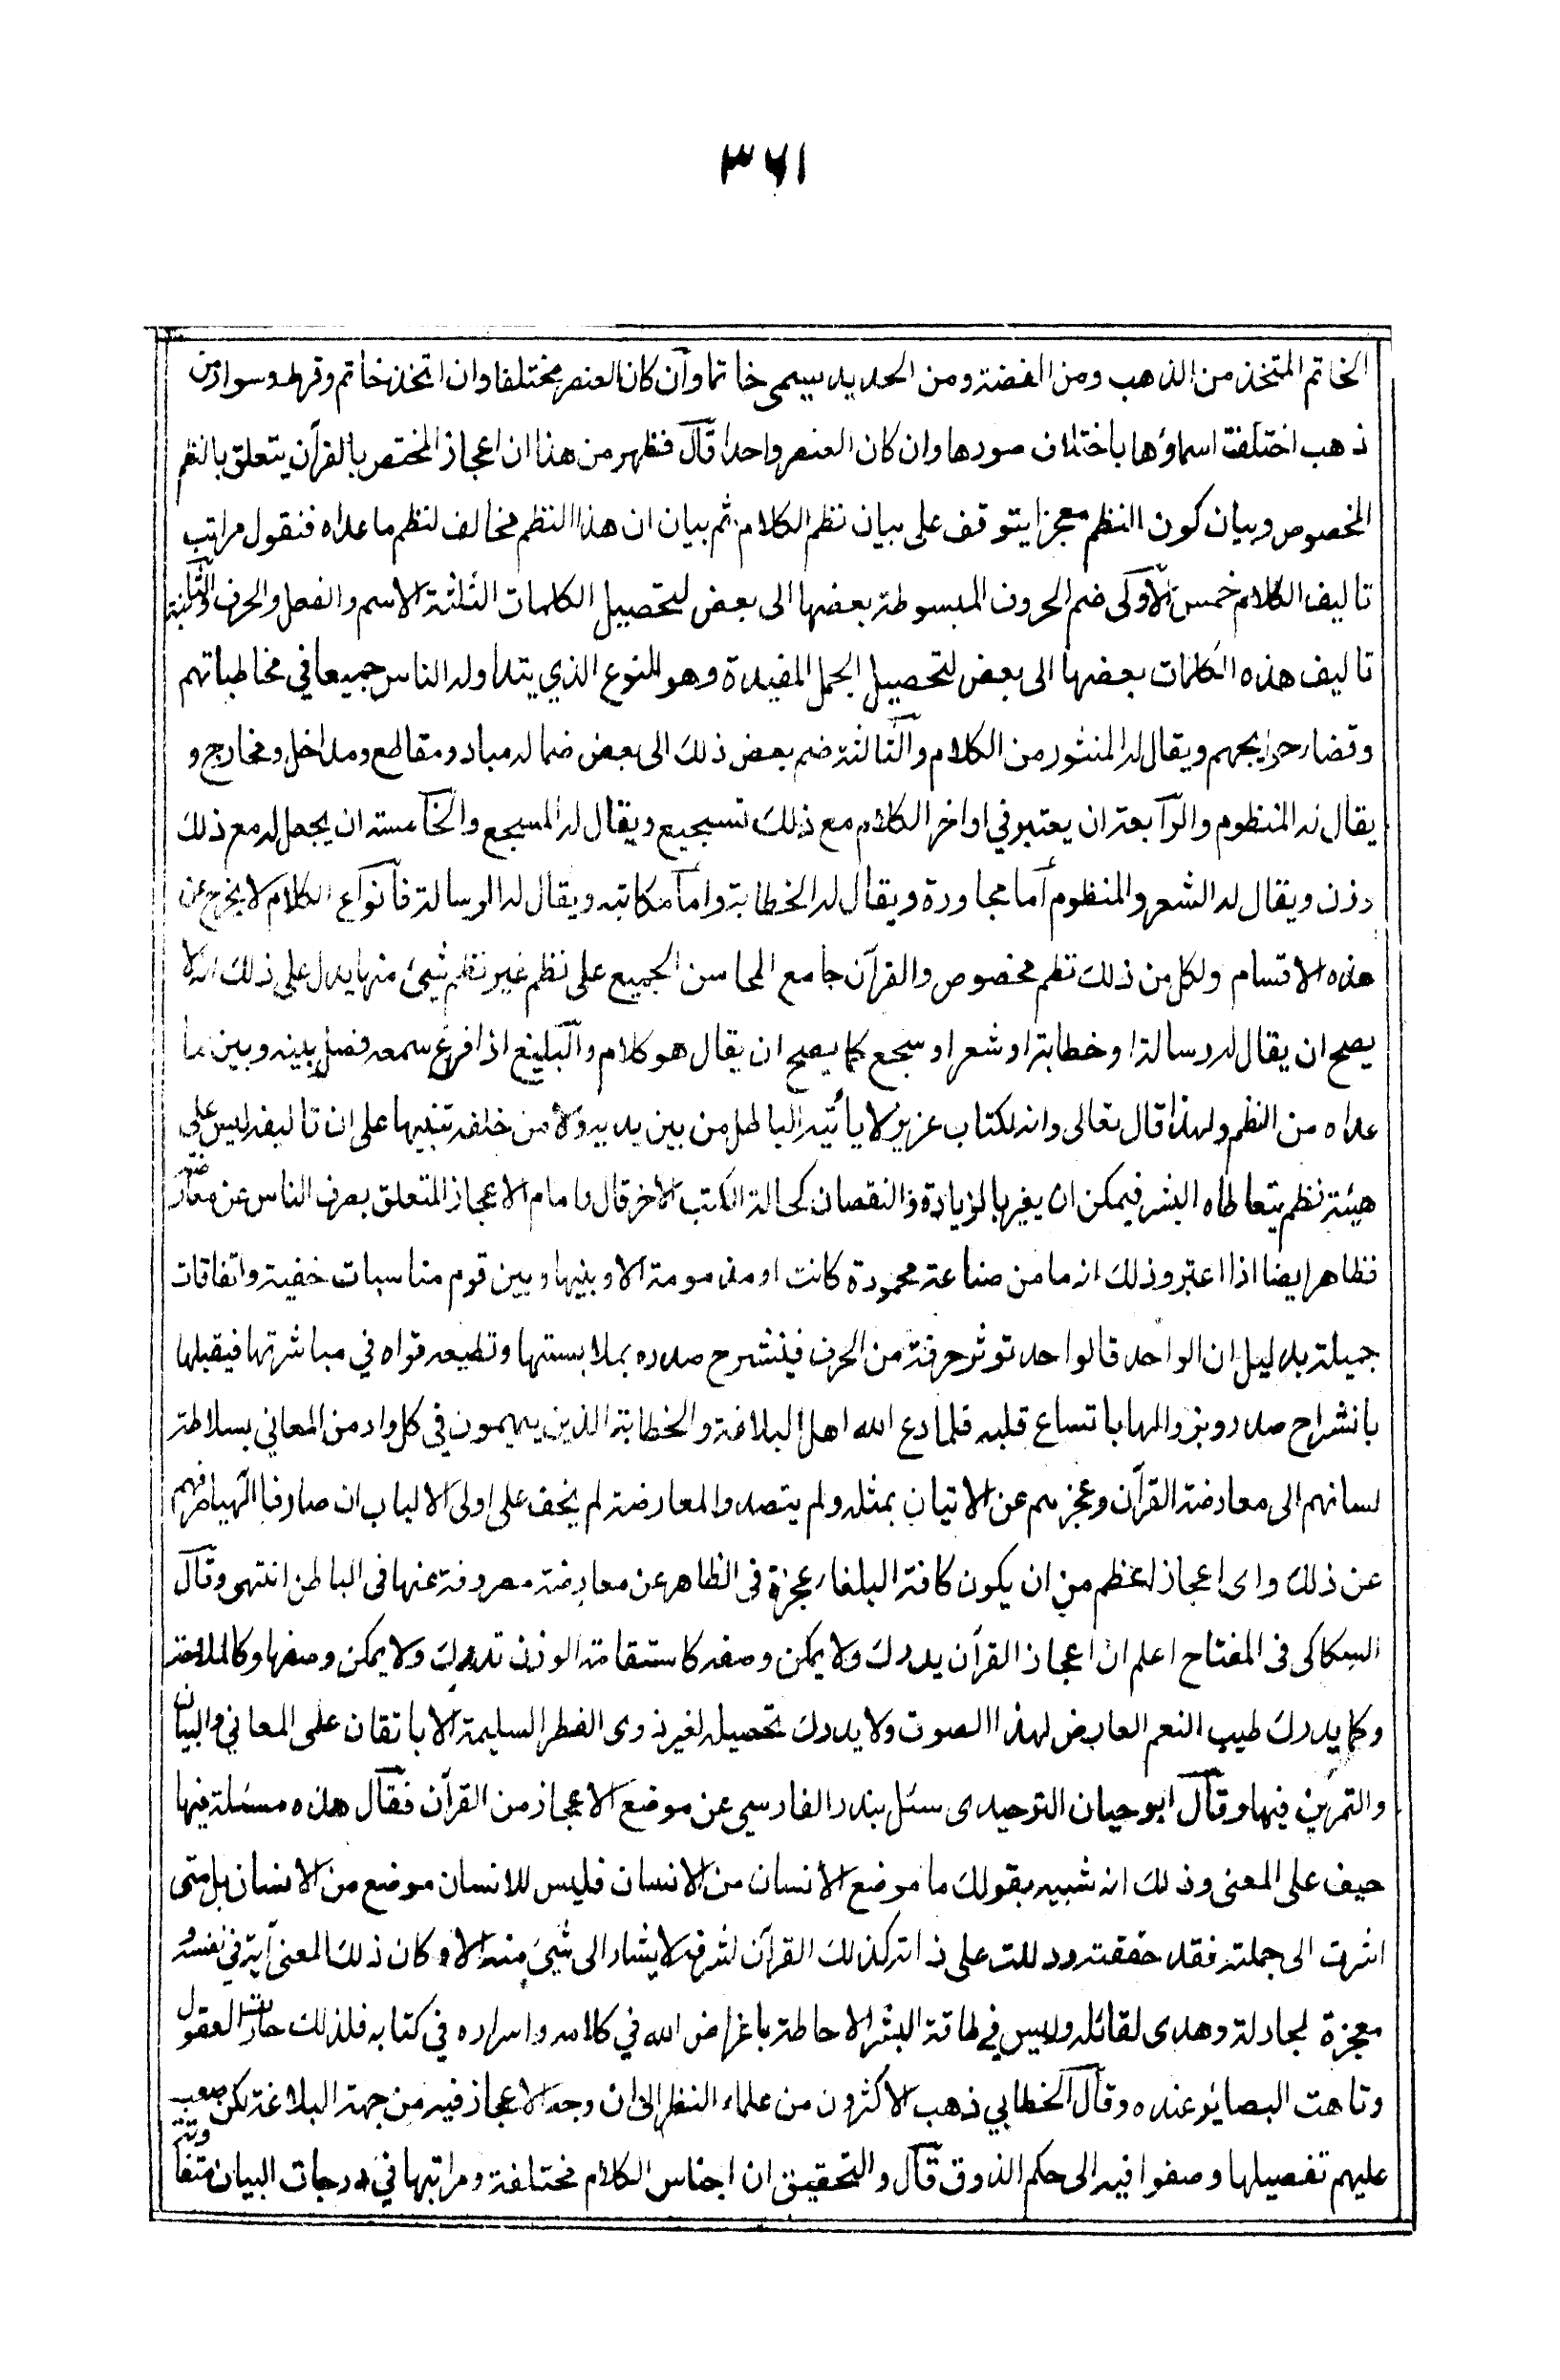 ٣٦١
الخاتم المتخذ من الذهب ومن الفضة ومن الحديد يسمى خاتما وان كان العنصر مختلفا وان اتخذ خاتم وقرط وسوار من
ذهب اختلفت اسماؤها باختلاف صورها وان كان العنصر واحدا قال فظهر من هذا ان اعجاز المختص بالقرآن يتعلق بالنظم
المخصوص وبيان كون النظم معجزا يتوقف على بيان نظم الكلام ثم بيان ان هذا النظم مخالف لنظم ما عداه فنقول مراتب
تاليف الكلام خمس الاولى ضم الحروف المبسوطة بعضها الى بعض لتحصيل الكلمات الثلثة الاسم والفعل والحرف والثانية
تاليف هذه الكلمات بعضها الى بعض لتحصيل الجمل المفيدة وهو النوع الذي يتداوله الناس جميعا في مخاطباتهم
وقضاء حوايجهم ويقال له المنثور من الكلام والثالثة ضم بعض ذلك الى بعض ضما له مباد ومقاطع ومداخل ومخارج و
يقال له المنظوم والرابعة ان يعتبر في اواخر الكلام مع ذلك تسجيع ويقال له المسجع والخامسة ان يجعل له مع ذلك
وزن ويقال له الشعر والمنظوم أما محاورة ويقال له الخطابة واما مكاتبه ويقال له الرسالة فأنواع الكلام لا يخرج عن
هذه الاقسام ولكل من ذلك نظم مخصوص والقرآن جامع المحاسن الجميع على نظم غير نظم شيئ منها يدل على ذلك انه لا
يصح ان يقال له رسالة او خطابة او شعر او سجع كما يصح ان يقال هو كلام والبليغ اذا قرع سمعه فصل بينه وبين ما
عداه من النظم ولهذا قال تعالى وانه لكتاب عزيز لا يأتيه الباطل من بين يديه ولا من خلفه تنبيها على ان تاليفه ليس على
هيئة نظم يتعاطاه البشر فيمكن ان يغير بالزيادة والنقصان كحالة الكتب الاخر قال واما م الاعجاز المتعلق بصرف الناس عن معارضته
فظاهر ايضا اذا اعتبر وذلك انه ما من صناعة محمودة كانت او مذمومة الا وبينها وبين قوم مناسبات خفية واتفاقات
جميلة بدليل ان الواحد فالواحد توثر حرفة من الحرف فينشرح صدره بملابستها وتطيعه قواه في مباشرتها فيقبلها
بانشراح صدر ويزوالها باتساع قلبه فلما دع الله اهل البلاغة والخطابة الذين يهيمون في كل واد من المعاني بسلاطة
لسانهم الى معارضة القرآن وعجزهم عن الاتيان بمثله ولم يتصدوا لمعارضة لم يخف على اولى الالباب ان صارفا الهيا صرفهم
عن ذلك واى اعجاز اعظم من ان يكون كافة البلغاء عجزة فى الظاهر عن معارضة مصروفة عنها فى الباطن انتهى وقال
السكاكى فى المفتاح اعلم ان اعجاز القرآن يدرك ولا يمكن وصفه كاستقامة الوزن تدرك ولا يمكن وصفها وكالملاحة
وكما يدرك طيب النعم العارض لهذا الصوت ولا يدرك تحصيله لغير ذوى الفطر السليمة الا باتقان علمى المعاني والبيان
والتمرين فيها وقال ابو حيان التوحيدى سئل بندر الفارسي عن موضع الاعجاز من القرآن فقال هذه مسئلة فيها
حيف على المعنى وذلك انه شبيه بقولك ما موضع الانسان من الانسان فليس للانسان موضع من الانسان بل متى
اشرت الى جملته فقد حققته ودللت على ذاته كذلك القرآن لشرفه لا يشار الى شيئ منه الا وكان ذلك المعنى آية في نفسه و
معجزة لمحادلة وهدى لقائله وليس في طاقة البشر الاحاطة باغراض الله في كلامه واسراره في كتابه فلذلك حارت العقول
وتاهت البصائر عنده وقال الخطابي ذهب الاكثرون من علماء النظر الى ان وجه الاعجاز فيه من جهة البلاغة لكن صعب
عليهم تفصيلها وصفوا فيه الى حكم الذوق قال والتحقيق ان اجناس الكلام مختلفة ومراتبها في درجات البيان متفاوتة